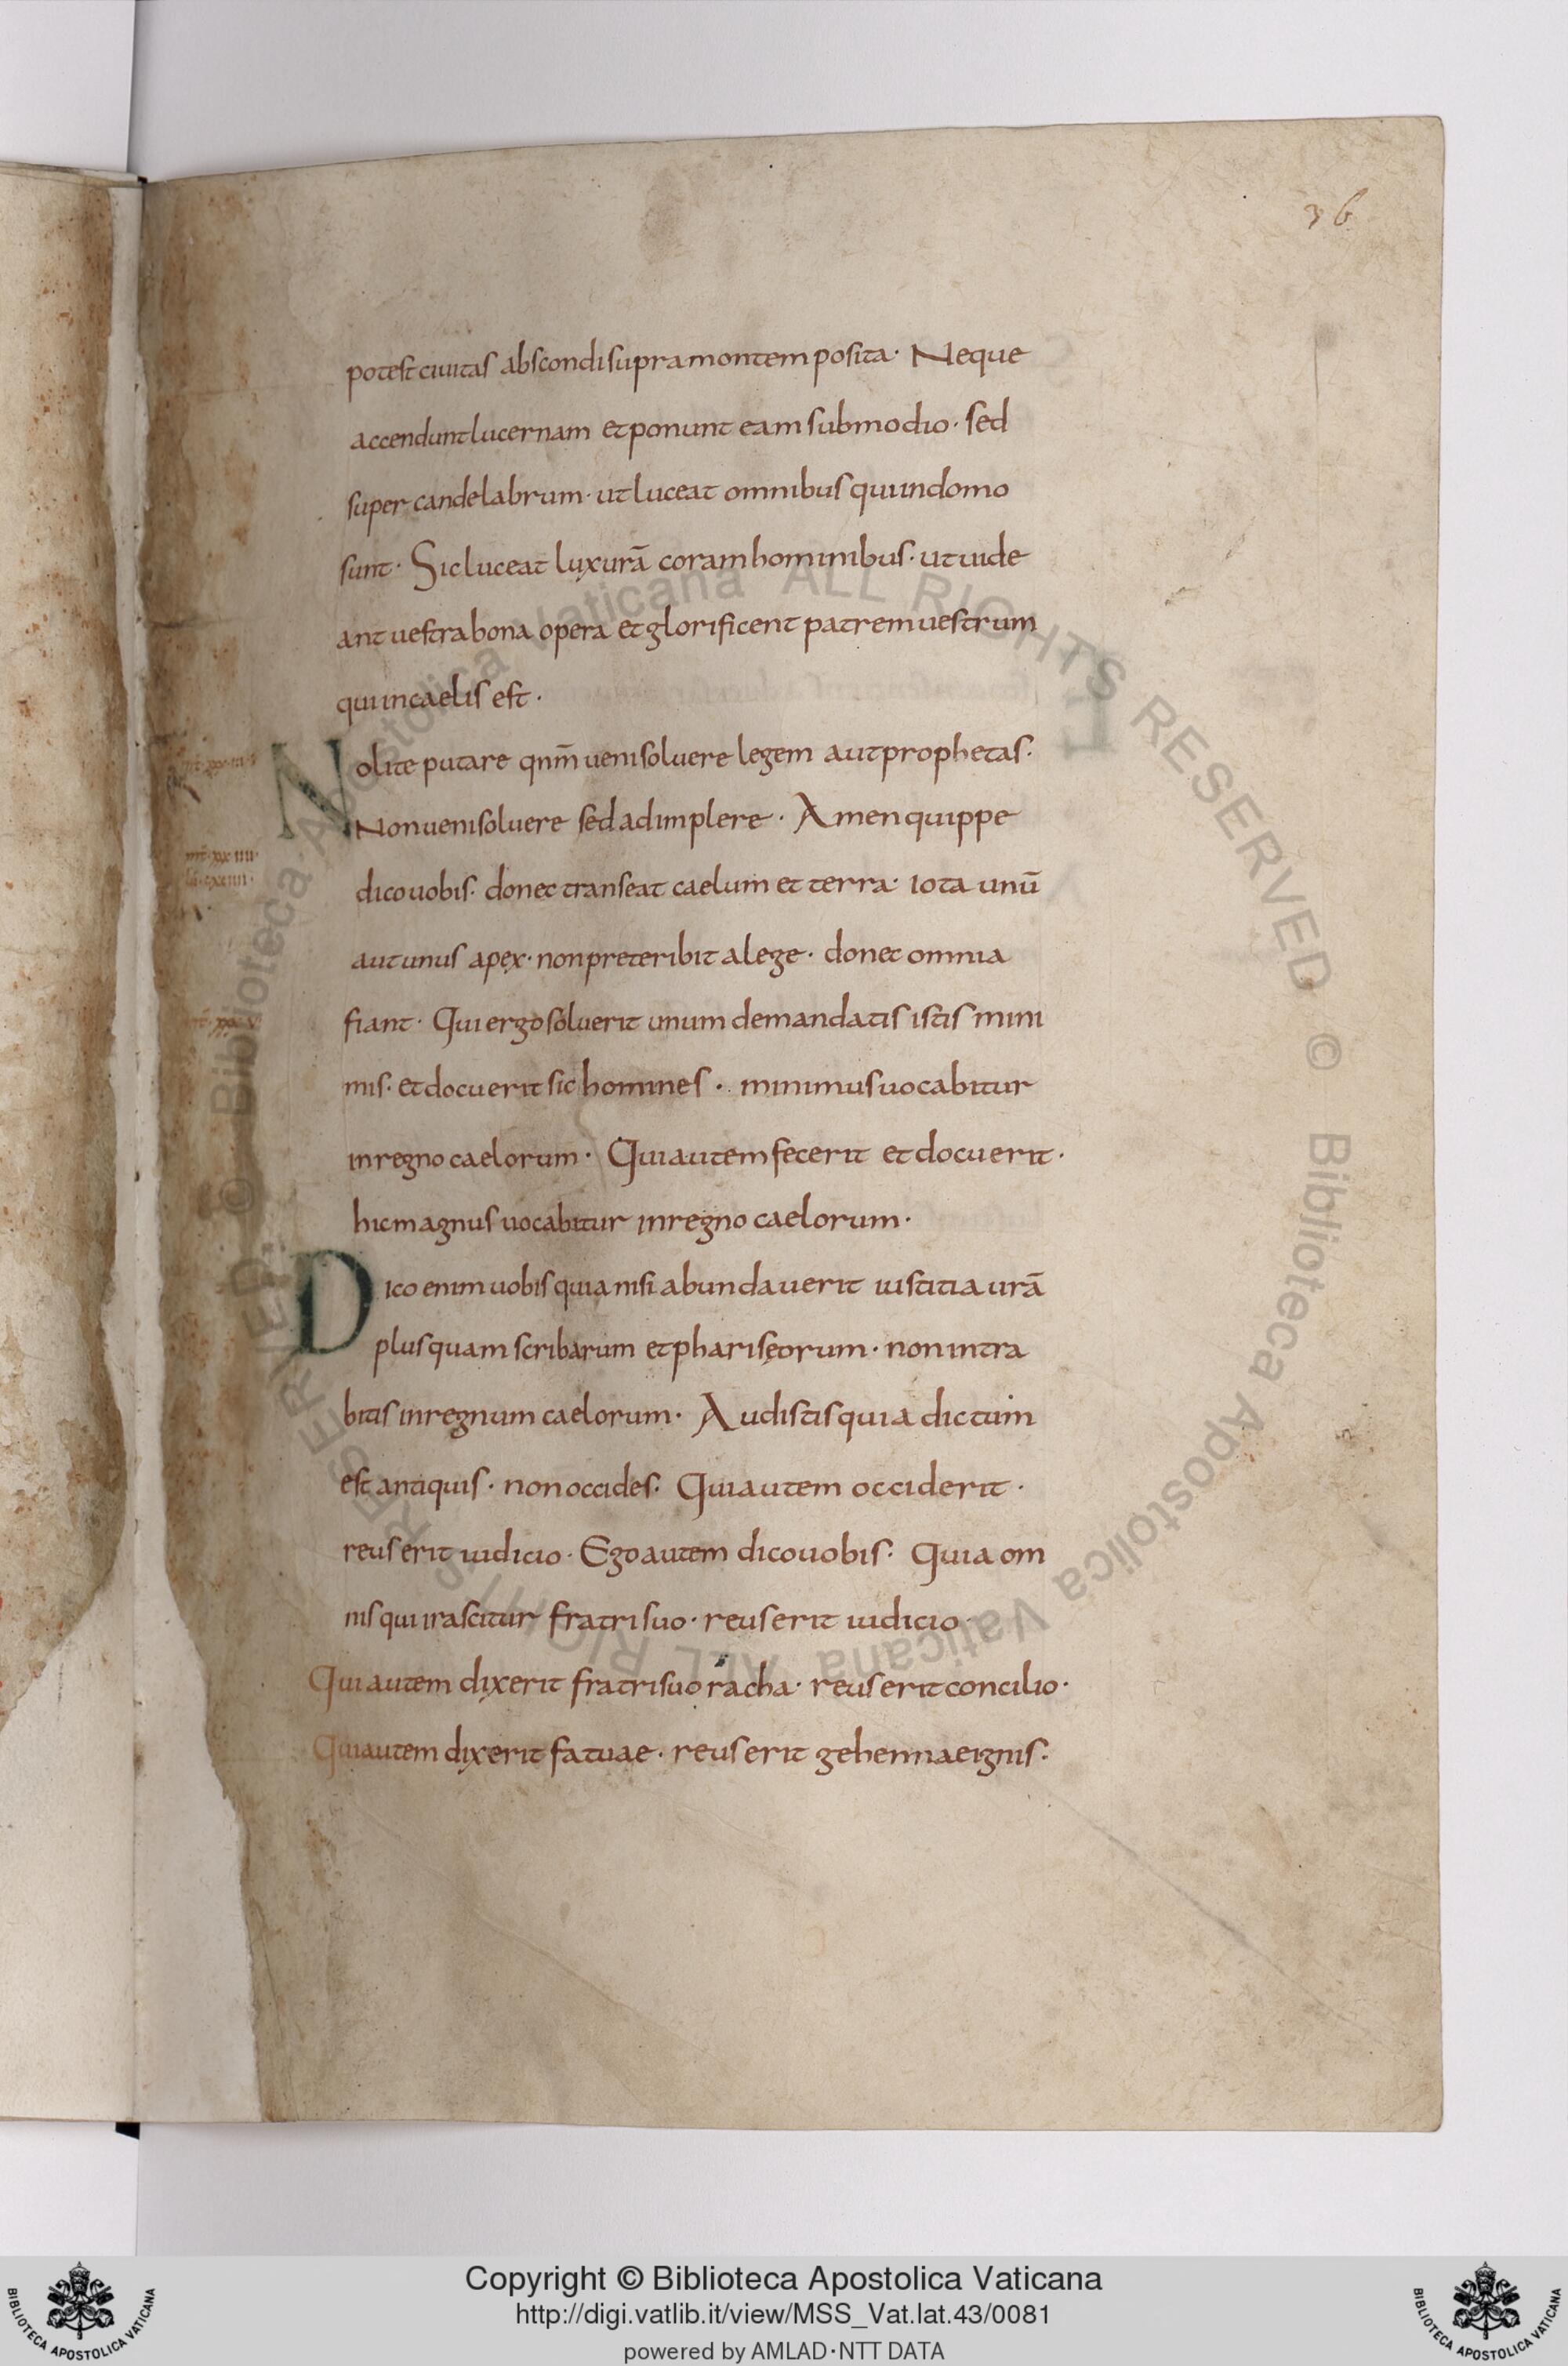 36
potest ciuitas abscondi supra montem posita· Neque
accendunt lucernam et ponunt eam sub modio· sed
super candelabrum· ut luceat omnibus qui in domo
sunt· Sic luceat lux urā coram hominibus· ut uide
ant uestra bona opera et glorificent patrem uestrum
qui in caelis est·
Nolite putare qnm̄ ueni soluere legem aut prophetas·
Non ueni soluere sed adimplere· Amen quippe
mt̄· xxx iiii·
dico uobis· donec transeat caelum et terra· Iota unū
aut unus apex· non preteribit a lege· donec omnia
fiant· Qui ergo soluerit unum de mandatis istis mini
mis· et docuerit sic homines· minimus uocabitur
in regno caelorum· Qui autem fecerit et docuerit·
hic magnus uocabitur in regno caelorum·
Dico enim uobis quia nisi abundauerit iustitia urā
plus quam scribarum et phariseorum· non intra
bitis in regnum caelorum· Audistis quia dictum
est antiquis· non occides· Qui autem occiderit·
reus erit iudicio· Ego autem dico uobis· Quia om
nis qui irascitur fratri suo· reus erit iudicio·
Qui autem dixerit fratri suo racha· reus erit concilio·
Qui autem dixerit fatuae· reus erit gehennae ignis·
© Biblioteca Apostolica Vaticana ALL RIGHTS RESERVED © Biblioteca Apostolica Vaticana ALL RIGHTS RESERVED
Copyright © Biblioteca Apostolica Vaticana
http://digi.vatlib.it/view/MSS_Vat.lat.43/0081
powered by AMLAD·NTT DATA
BIBLIOTECA APOSTOLICA VATICANA
BIBLIOTECA APOSTOLICA VATICANA